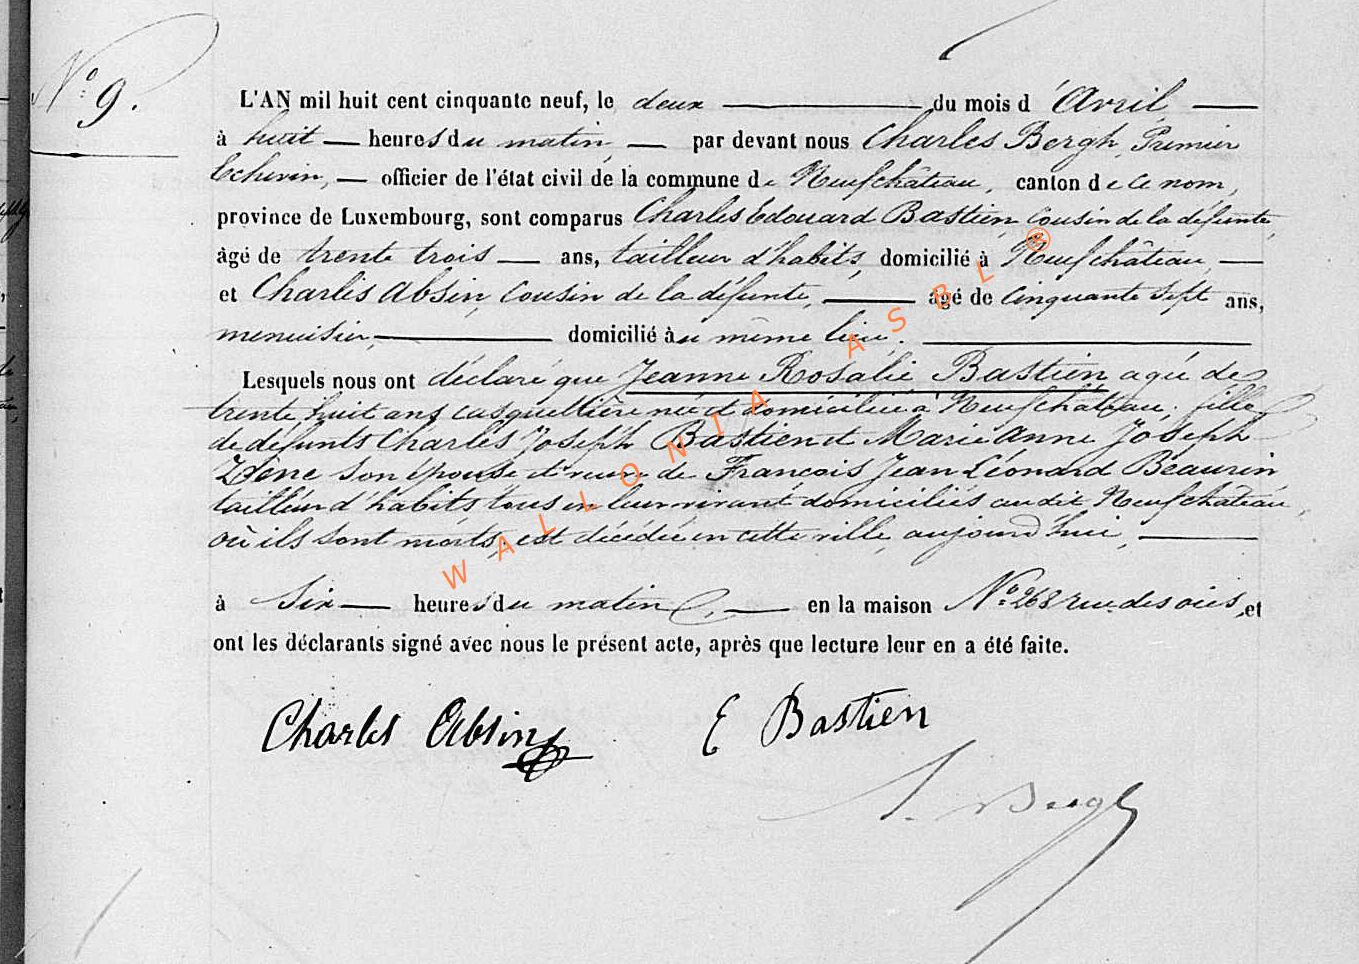 N° 9.
L'AN mil huit cent cinquante neuf, le deux du mois d'Avril,
à huit heures du matin, par devant nous Charles Bergh, Premier
Echevin, officier de l'état civil de la commune de Neufchâteau, canton de ce nom,
province de Luxembourg, sont comparus Charles Edouard Bastien, cousin de la défunte,
âgé de trente trois ans, tailleur d'habits, domicilié à Neufchâteau,
et Charles Absin, cousin de la défunte, âgé de cinquante sept ans,
menuisier, domicilié au même lieu.
Lesquels nous ont déclaré que Jeanne Rosalie Bastien agée de
trente huit ans casquettière née et domiciliée à Neufchâteau, fille
de défunts Charles Joseph Bastien et Marie Anne Joseph
son épouse et veuve de François Jean Léonard Beaurin
tailleur d'habits tous en leur vivant domiciliés audit Neufchâteau,
où ils sont morts, est décédée en cette ville, aujourd'hui,
à six heures du matin, en la maison N° 268 rue des oies, et
ont les déclarants signé avec nous le présent acte, après que lecture leur en a été faite.
Charles Absin E Bastien
Bergh
WALLONIA ASBL ®